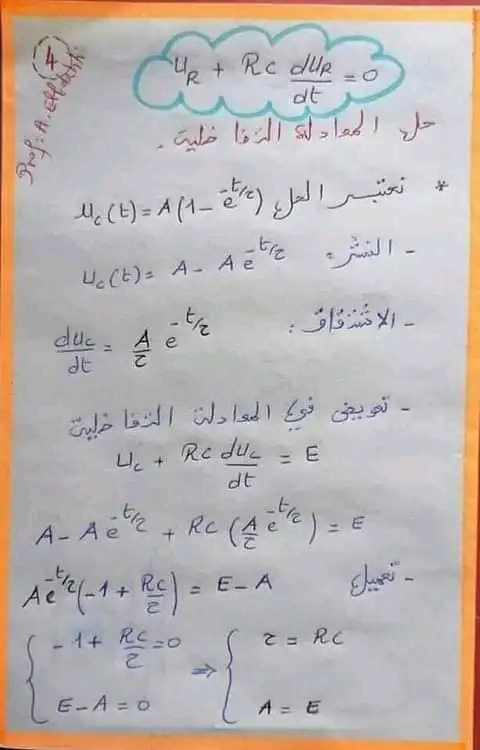 4
Prof: A.
u_R + RC du_R/dt = 0
حل المعادلة التفاضلية.
* نعتبر الحل u_c(t) = A(1 - e^{-t/τ})
- النشر: u_c(t) = A - A e^{-t/τ}
- الاشتقاق: du_c/dt = A/τ e^{-t/τ}
- تعويض في المعادلة التفاضلية
u_c + RC du_c/dt = E
A - A e^{-t/τ} + RC (A/τ e^{-t/τ}) = E
- تعميل A e^{-t/τ} (-1 + RC/τ) = E - A
{ -1 + RC/τ = 0 ⇒ { τ = RC
E - A = 0 A = E